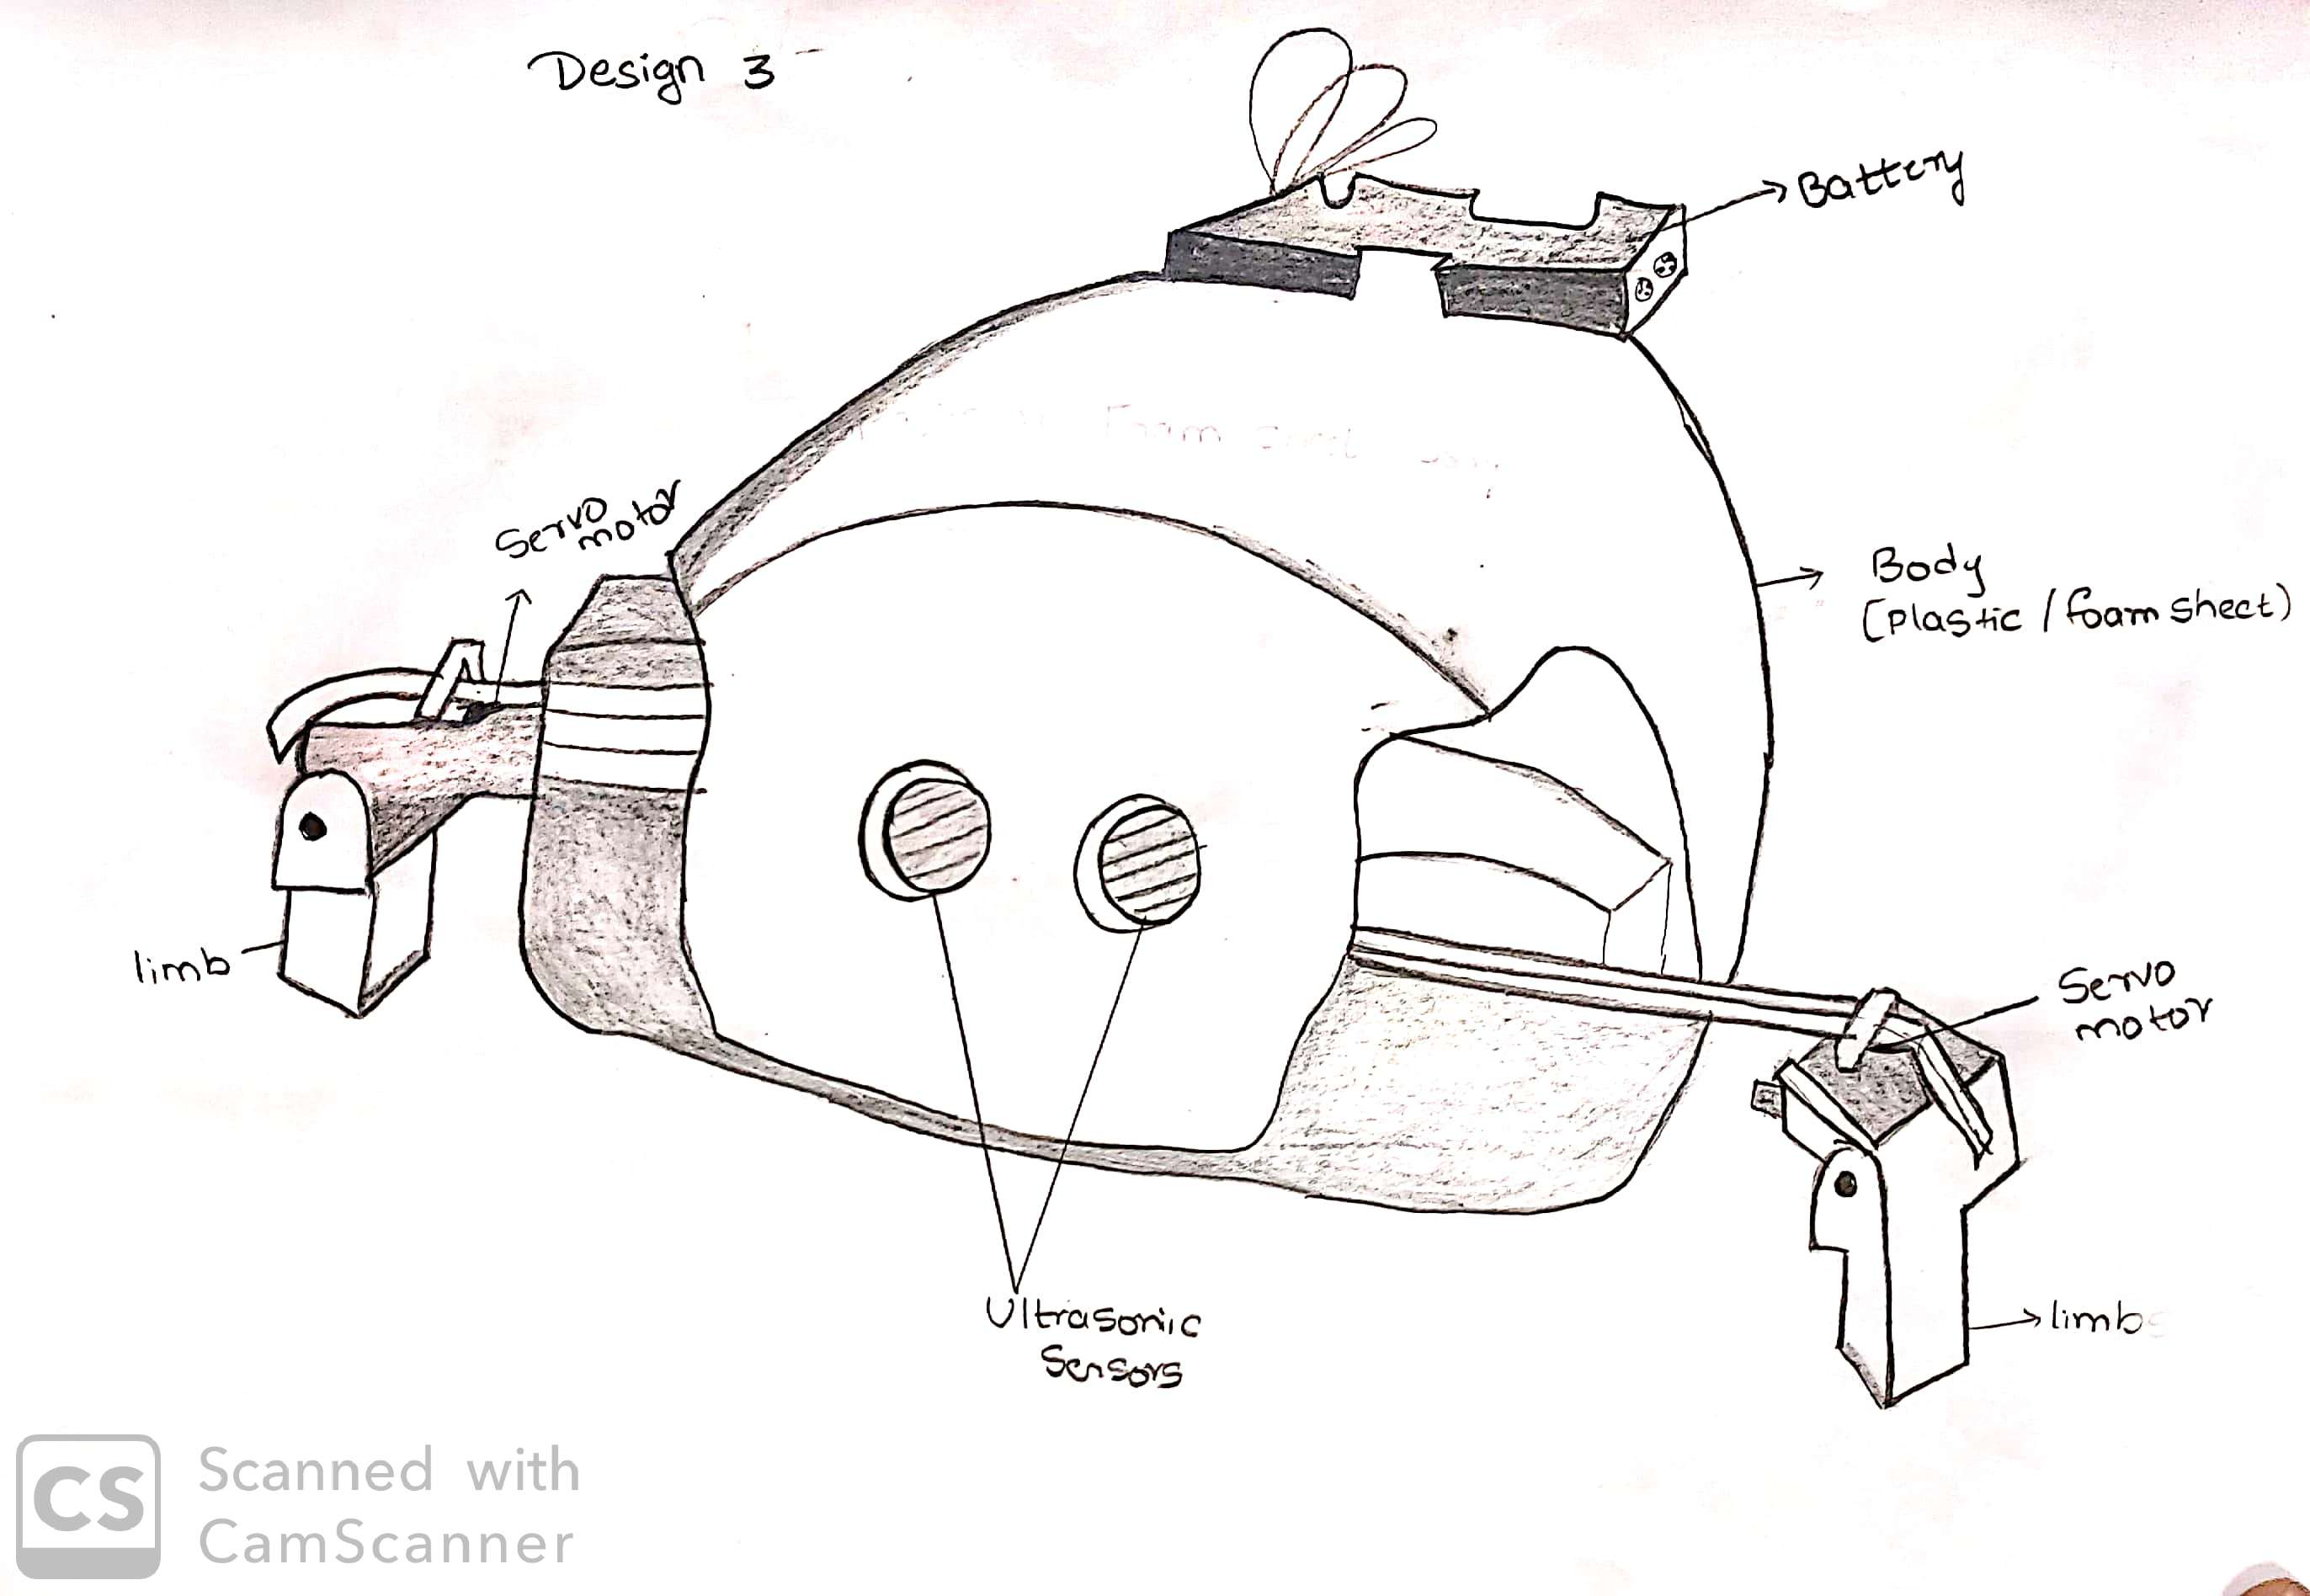 Design 3
Battery
Servo
motor
Body
(Plastic / foam sheet)
limb
Servo
motor
limbs
Ultrasonic
Sensors
CS
Scanned with
CamScanner